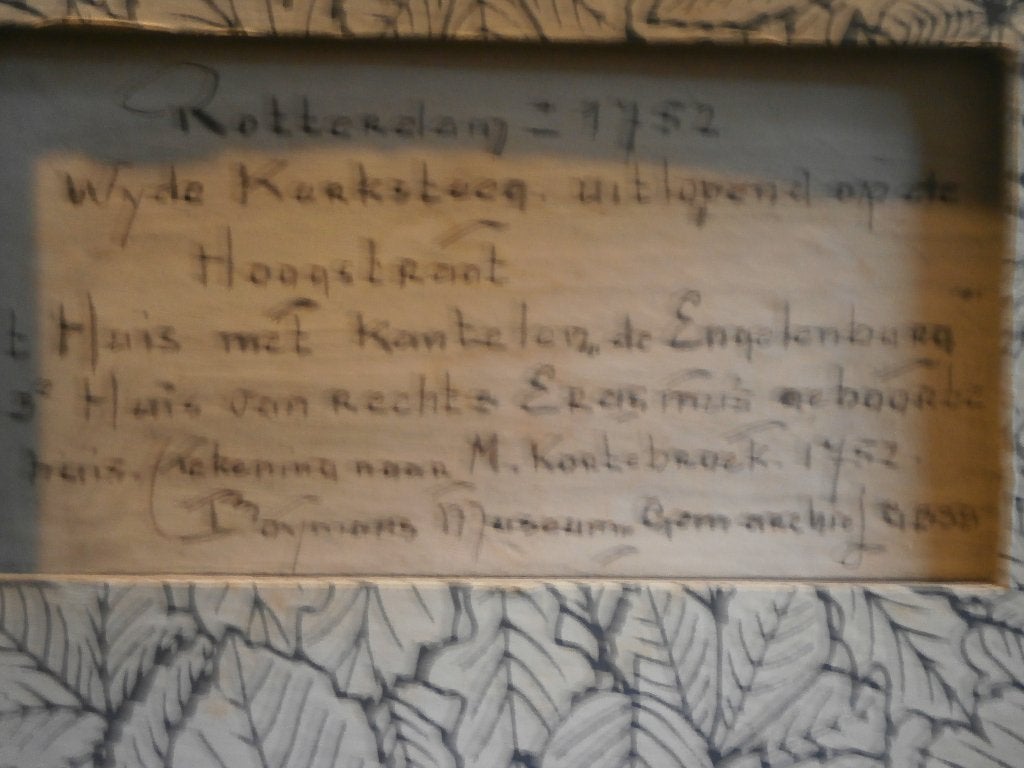 Rotterdam = 1752
Wyde Kerksteeg. uitlopend op de
Hoogstraat
t Huis met kantelen,, de Engelenburg
3e Huis van rechts Erasmus geboorte
huis. (tekening naar M. Kortebroek. 1752.
(Boymans Museum. Gem archief